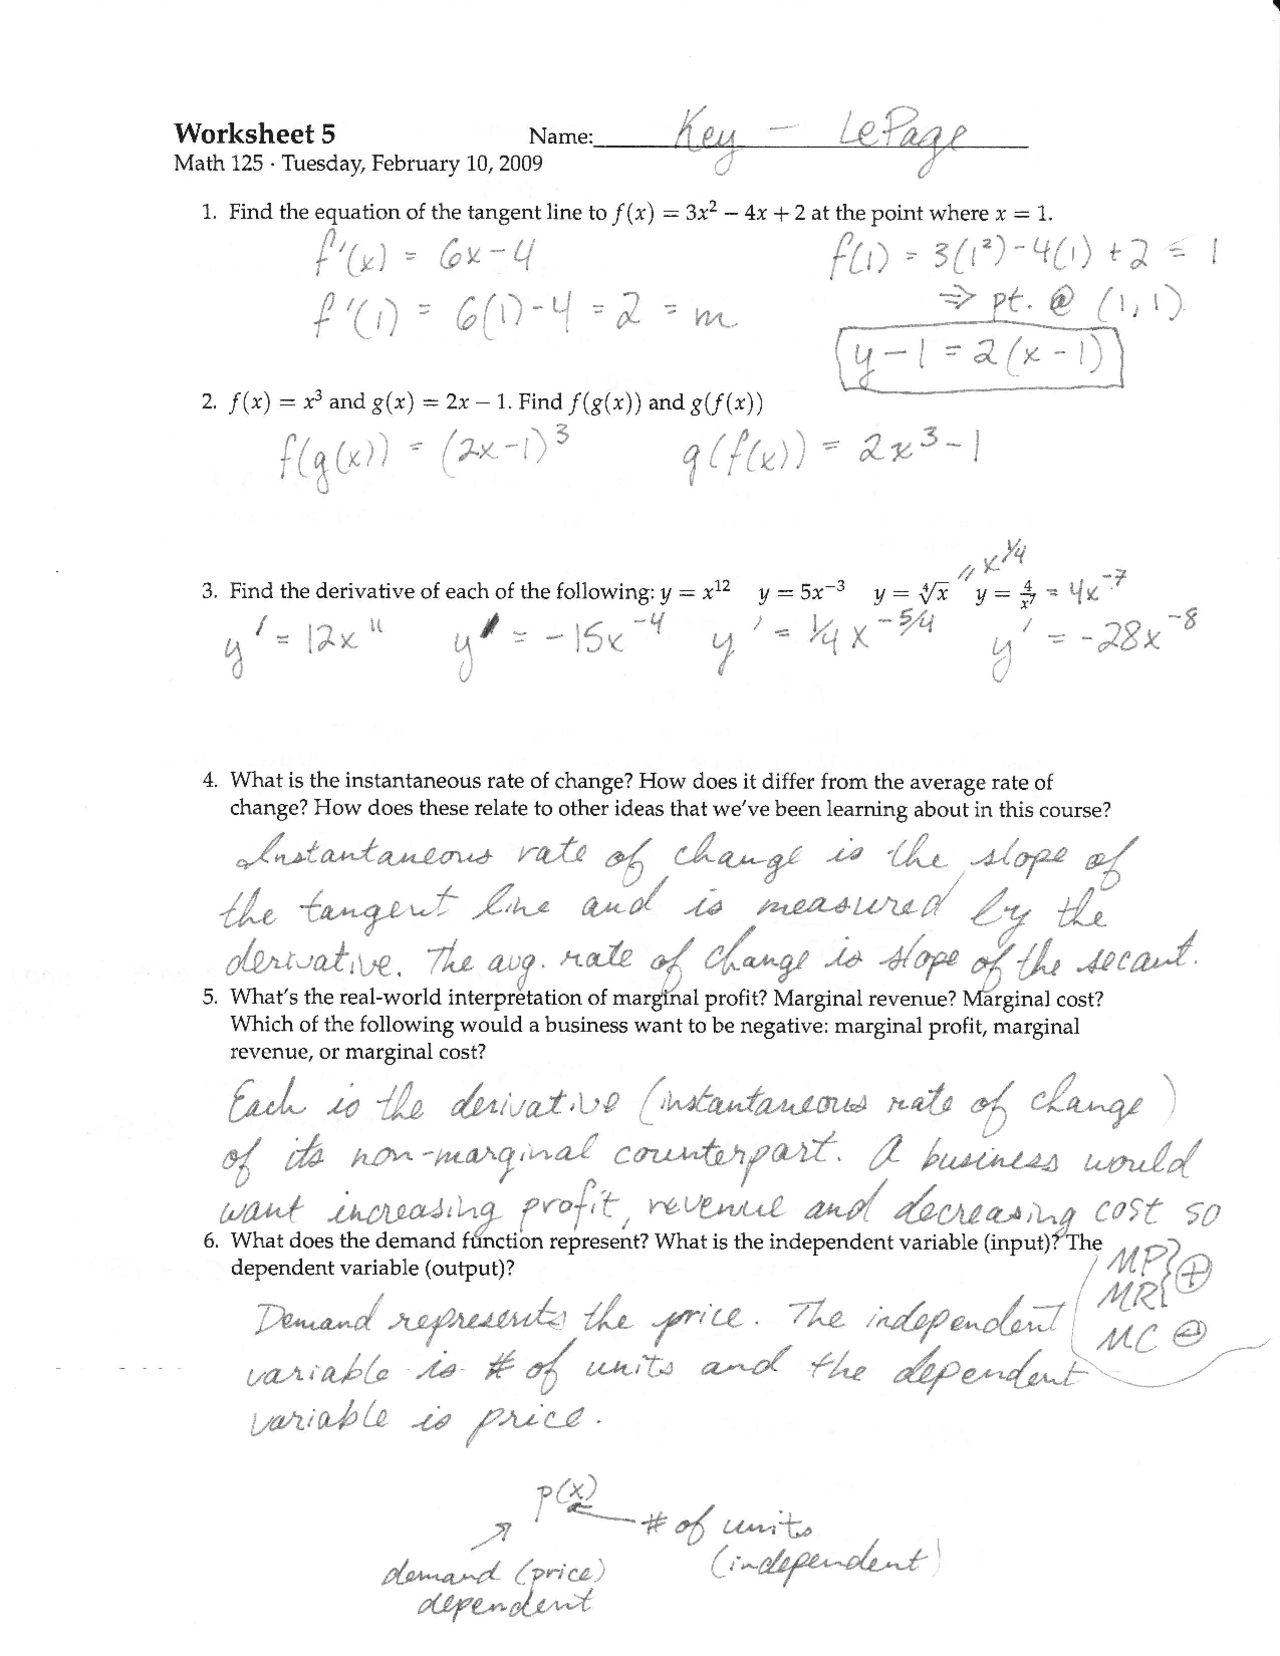 Worksheet 5 Name: Key – LePage
Math 125 · Tuesday, February 10, 2009
1. Find the equation of the tangent line to f(x) = 3x² − 4x + 2 at the point where x = 1.
f'(x) = 6x − 4 f(1) = 3(1²) − 4(1) + 2 = 1
f'(1) = 6(1) − 4 = 2 = m ⇒ pt. @ (1, 1)
y − 1 = 2(x − 1)
2. f(x) = x³ and g(x) = 2x − 1. Find f(g(x)) and g(f(x))
f(g(x)) = (2x−1)³ g(f(x)) = 2x³ − 1
" x^1/4
3. Find the derivative of each of the following: y = x¹² y = 5x⁻³ y = ∜x y = 4/x⁷ = 4x⁻⁷
y' = 12x¹¹ y' = −15x⁻⁴ y' = 1/4 x^−5/4 y' = −28x⁻⁸
4. What is the instantaneous rate of change? How does it differ from the average rate of
change? How does these relate to other ideas that we've been learning about in this course?
Instantaneous rate of change is the slope of
the tangent line and is measured by the
derivative. The avg. rate of change is slope of the secant.
5. What's the real-world interpretation of marginal profit? Marginal revenue? Marginal cost?
Which of the following would a business want to be negative: marginal profit, marginal
revenue, or marginal cost?
Each is the derivative (instantaneous rate of change)
of its non-marginal counterpart. A business would
want increasing profit, revenue and decreasing cost so
6. What does the demand function represent? What is the independent variable (input)? The
dependent variable (output)?
MP} ⊕
MR}
MC ⊖
Demand represents the price. The independent
variable is # of units and the dependent
variable is price.
p(x)
# of units
(independent)
demand (price)
dependent